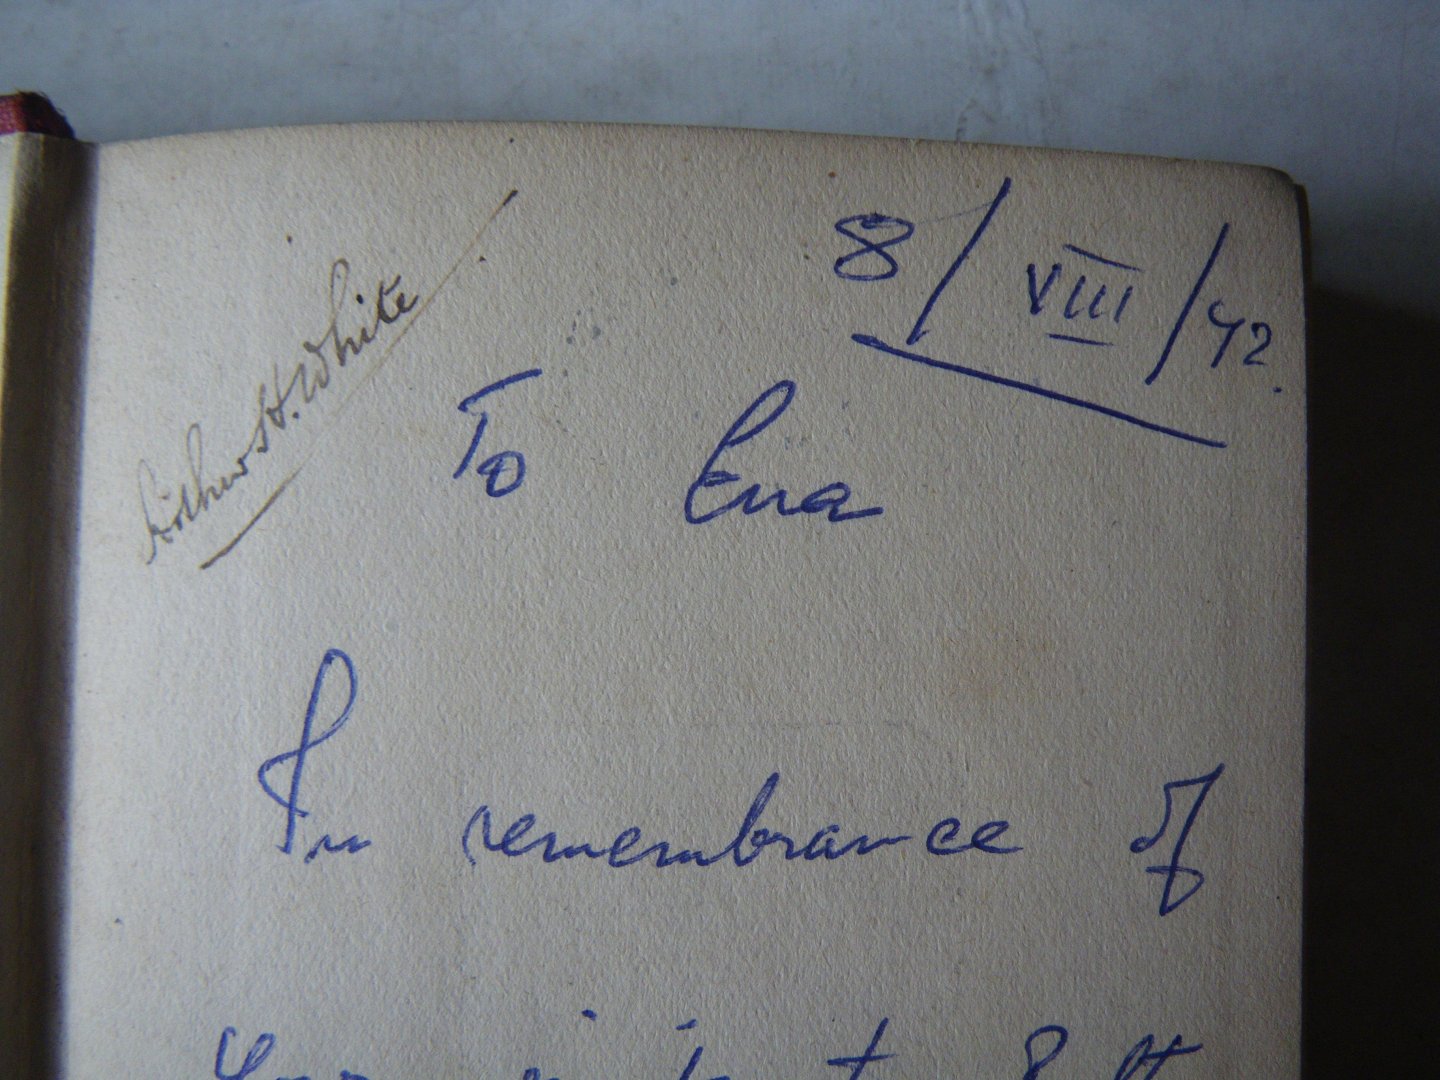 Arthur H. White
8/VIII/42.
To Ena
In remembrance of